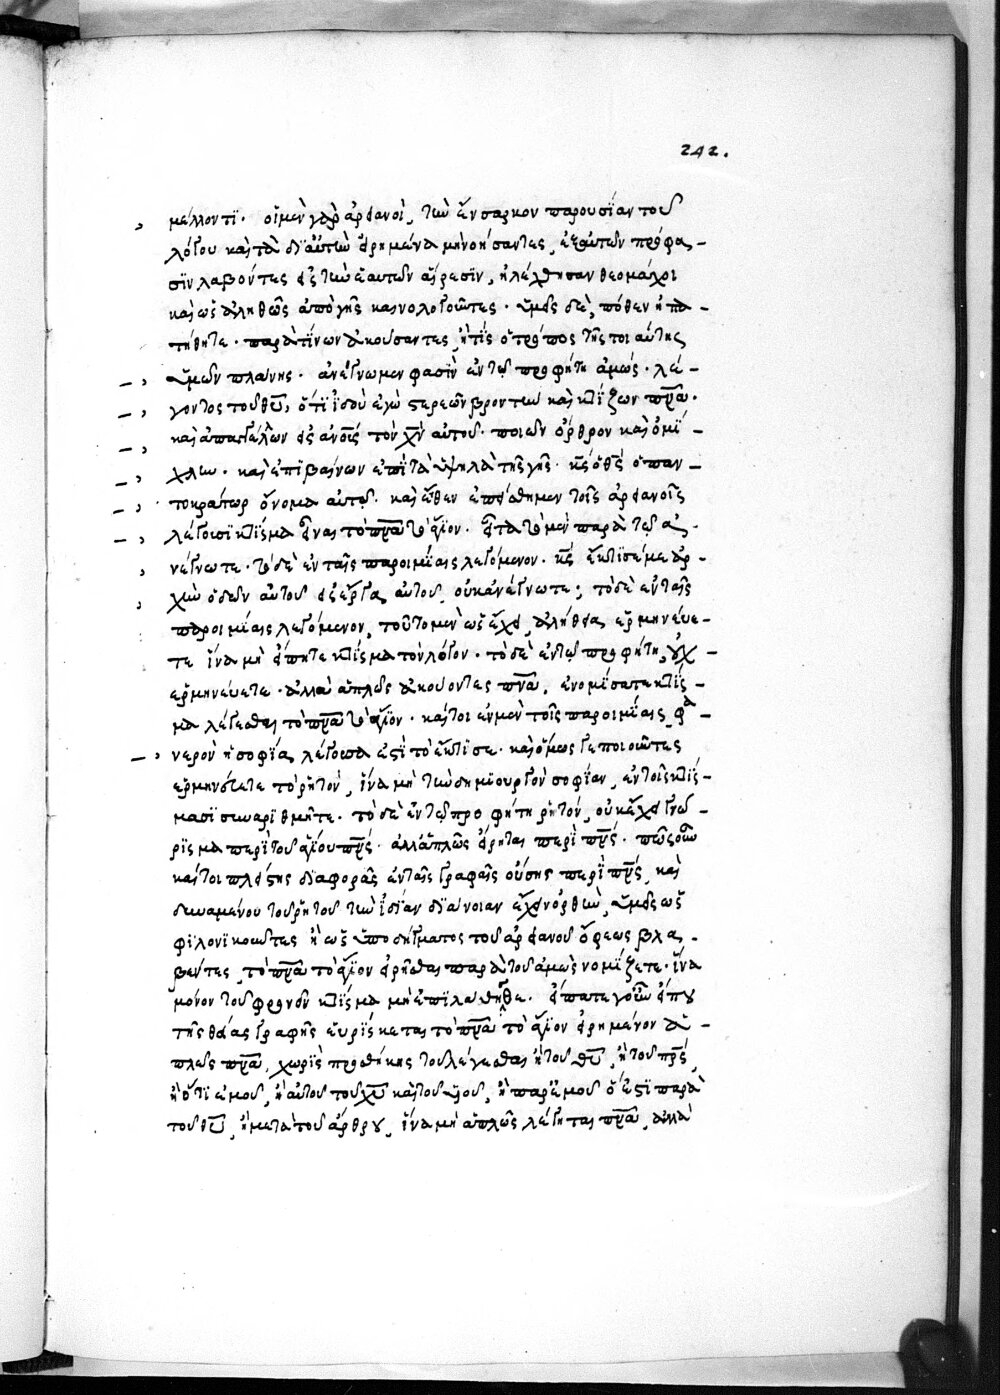 242.
μέλλοντϊ. οἱ μὲν γὰρ ἀρειανοὶ, τὴν ἔνσαρκον παρουσίαν τοῦ
λόγου καὶ τὰ δι' αὐτὴν εἰρημένα μὴ νοήσαντες, ἐξ αὐτῶν πρόφα-
σϊν λαβόντες εἰς τὴν ἑαυτῶν αἵρεσϊν, ἠλέγχθησαν θεομάχοι
καὶ ὡς ἀληθῶς ἀπὸ γῆς κενολογοῦντες. ὑμεῖς δὲ, πόθεν ἠπα-
τήθητε. παρὰ τίνων ἀκούσαντες, ἢ τίς ὁ τρόπος τῆς τοιαύτης
ὑμῶν πλάνης. ἀνέγνωμεν φασὶν ἐν τῷ προφήτῃ ἀμώς. λέ-
γοντος τοῦ θυ, ὅτϊ ἰδοὺ ἐγὼ στερεῶν βροντὴν καὶ κτίζων πνα.
καὶ ἀπαγγέλλων εἰς ἀνους τὸν χν αὐτοῦ. ποιῶν ὄρθρον καὶ ὁμί-
χλην. καὶ ἐπϊβαίνων ἐπὶ τὰ ὑψηλὰ τῆς γῆς. κς ὁ θς ὁ παν-
τοκράτωρ ὄνομα αὐτῷ. καὶ ὅθεν ἐπείσθημεν τοῖς ἀρειανοῖς
λέγουσϊ κτίσμα εἶναι τὸ πνα τὸ ἅγϊον. εἶτα τὸ μὲν παρὰ τῷ ἀ-
νέγνωτε. τὸ δὲ ἐν ταῖς παροιμίαις λεγόμενον. κς ἔκτϊσέ με ἀρ-
χὴν ὁδῶν αὐτοῦ εἰς ἔργα αὐτοῦ, οὐκ ἀνέγνωτε; τὸ δὲ ἐν ταῖς
παροιμίαις λεγόμενον, τοῦτο μὲν ὡς ἔχει ἀληθείας ἑρμηνεύε-
τε ἵνα μὴ εἴπητε κτίσμα τὸν λόγον. τὸ δὲ ἐν τῷ προφήτῃ, οὐχ
ἑρμηνεύετε. ἀλλὰ ἁπλῶς ἀκούοντες πνα, ἐνομίσατε κτίσ-
μα λέγεσθαι τὸ πνα τὸ ἅγϊον. καίτοι ἐν μὲν τοῖς παροιμίαις, φα-
νερὸν ἡ σοφΐα λέγουσα ἐστὶ τὸ ἔκτϊσε. καὶ ὅμως γε ποιοῦντες
ἑρμηνεύετε τὸ ῥητὸν, ἵνα μὴ τὴν δημιουργὸν σοφίαν, ἐν τοῖς κτίσ-
μασϊ συναρϊθμῆτε. τὸ δὲ ἐν τῷ προφήτῃ ῥητὸν, οὐκ ἔχει γνώ-
ρϊσμα περὶ τοῦ ἁγίου πνς. ἀλλ' ἁπλῶς εἴρηται περὶ πνς. πῶς οὖν
καίτοι πλείστης διαφορᾶς ἐν ταῖς γραφαῖς οὔσης περὶ πνς, καὶ
δυναμένου τοῦ ῥητοῦ τὴν ἰδίαν διάνοιαν ἔχειν ὀρθὴν, ὑμεῖς ὡς
φϊλονϊκοῦντες ἢ ὡς ὑπὸ δήγματος τοῦ ἀρείανοῦ ὄφεως βλα-
βέντες, τὸ πνα τὸ ἅγϊον εἰρῆσθαι παρὰ τοῦ ἀμὼς νομίζετε. ἵνα
μόνον τοῦ φρονεῖν κτίσμα μὴ ἐπϊλάθησθε. εἴπατε γοῦν εἴπου
τῆς θείας γραφῆς εὑρίσκεται τὸ πνα τὸ ἅγϊον εἰρημένον ἁ-
πλῶς πνα, χωρὶς προσθήκης τοῦ λέγεσθαι ἢ τοῦ θυ, ἢ τοῦ πρς,
ἢ ὅτϊ ἐμοῦ, ἢ αὐτοῦ τοῦ χυ καὶ τοῦ υἱοῦ, ἢ παρ' ἐμοῦ ὅ ἐστϊ παρὰ
τοῦ θυ, ἢ μετὰ τοῦ ἄρθρου, ἵνα μὴ ἁπλῶς λέγηται πνα, ἀλλὰ